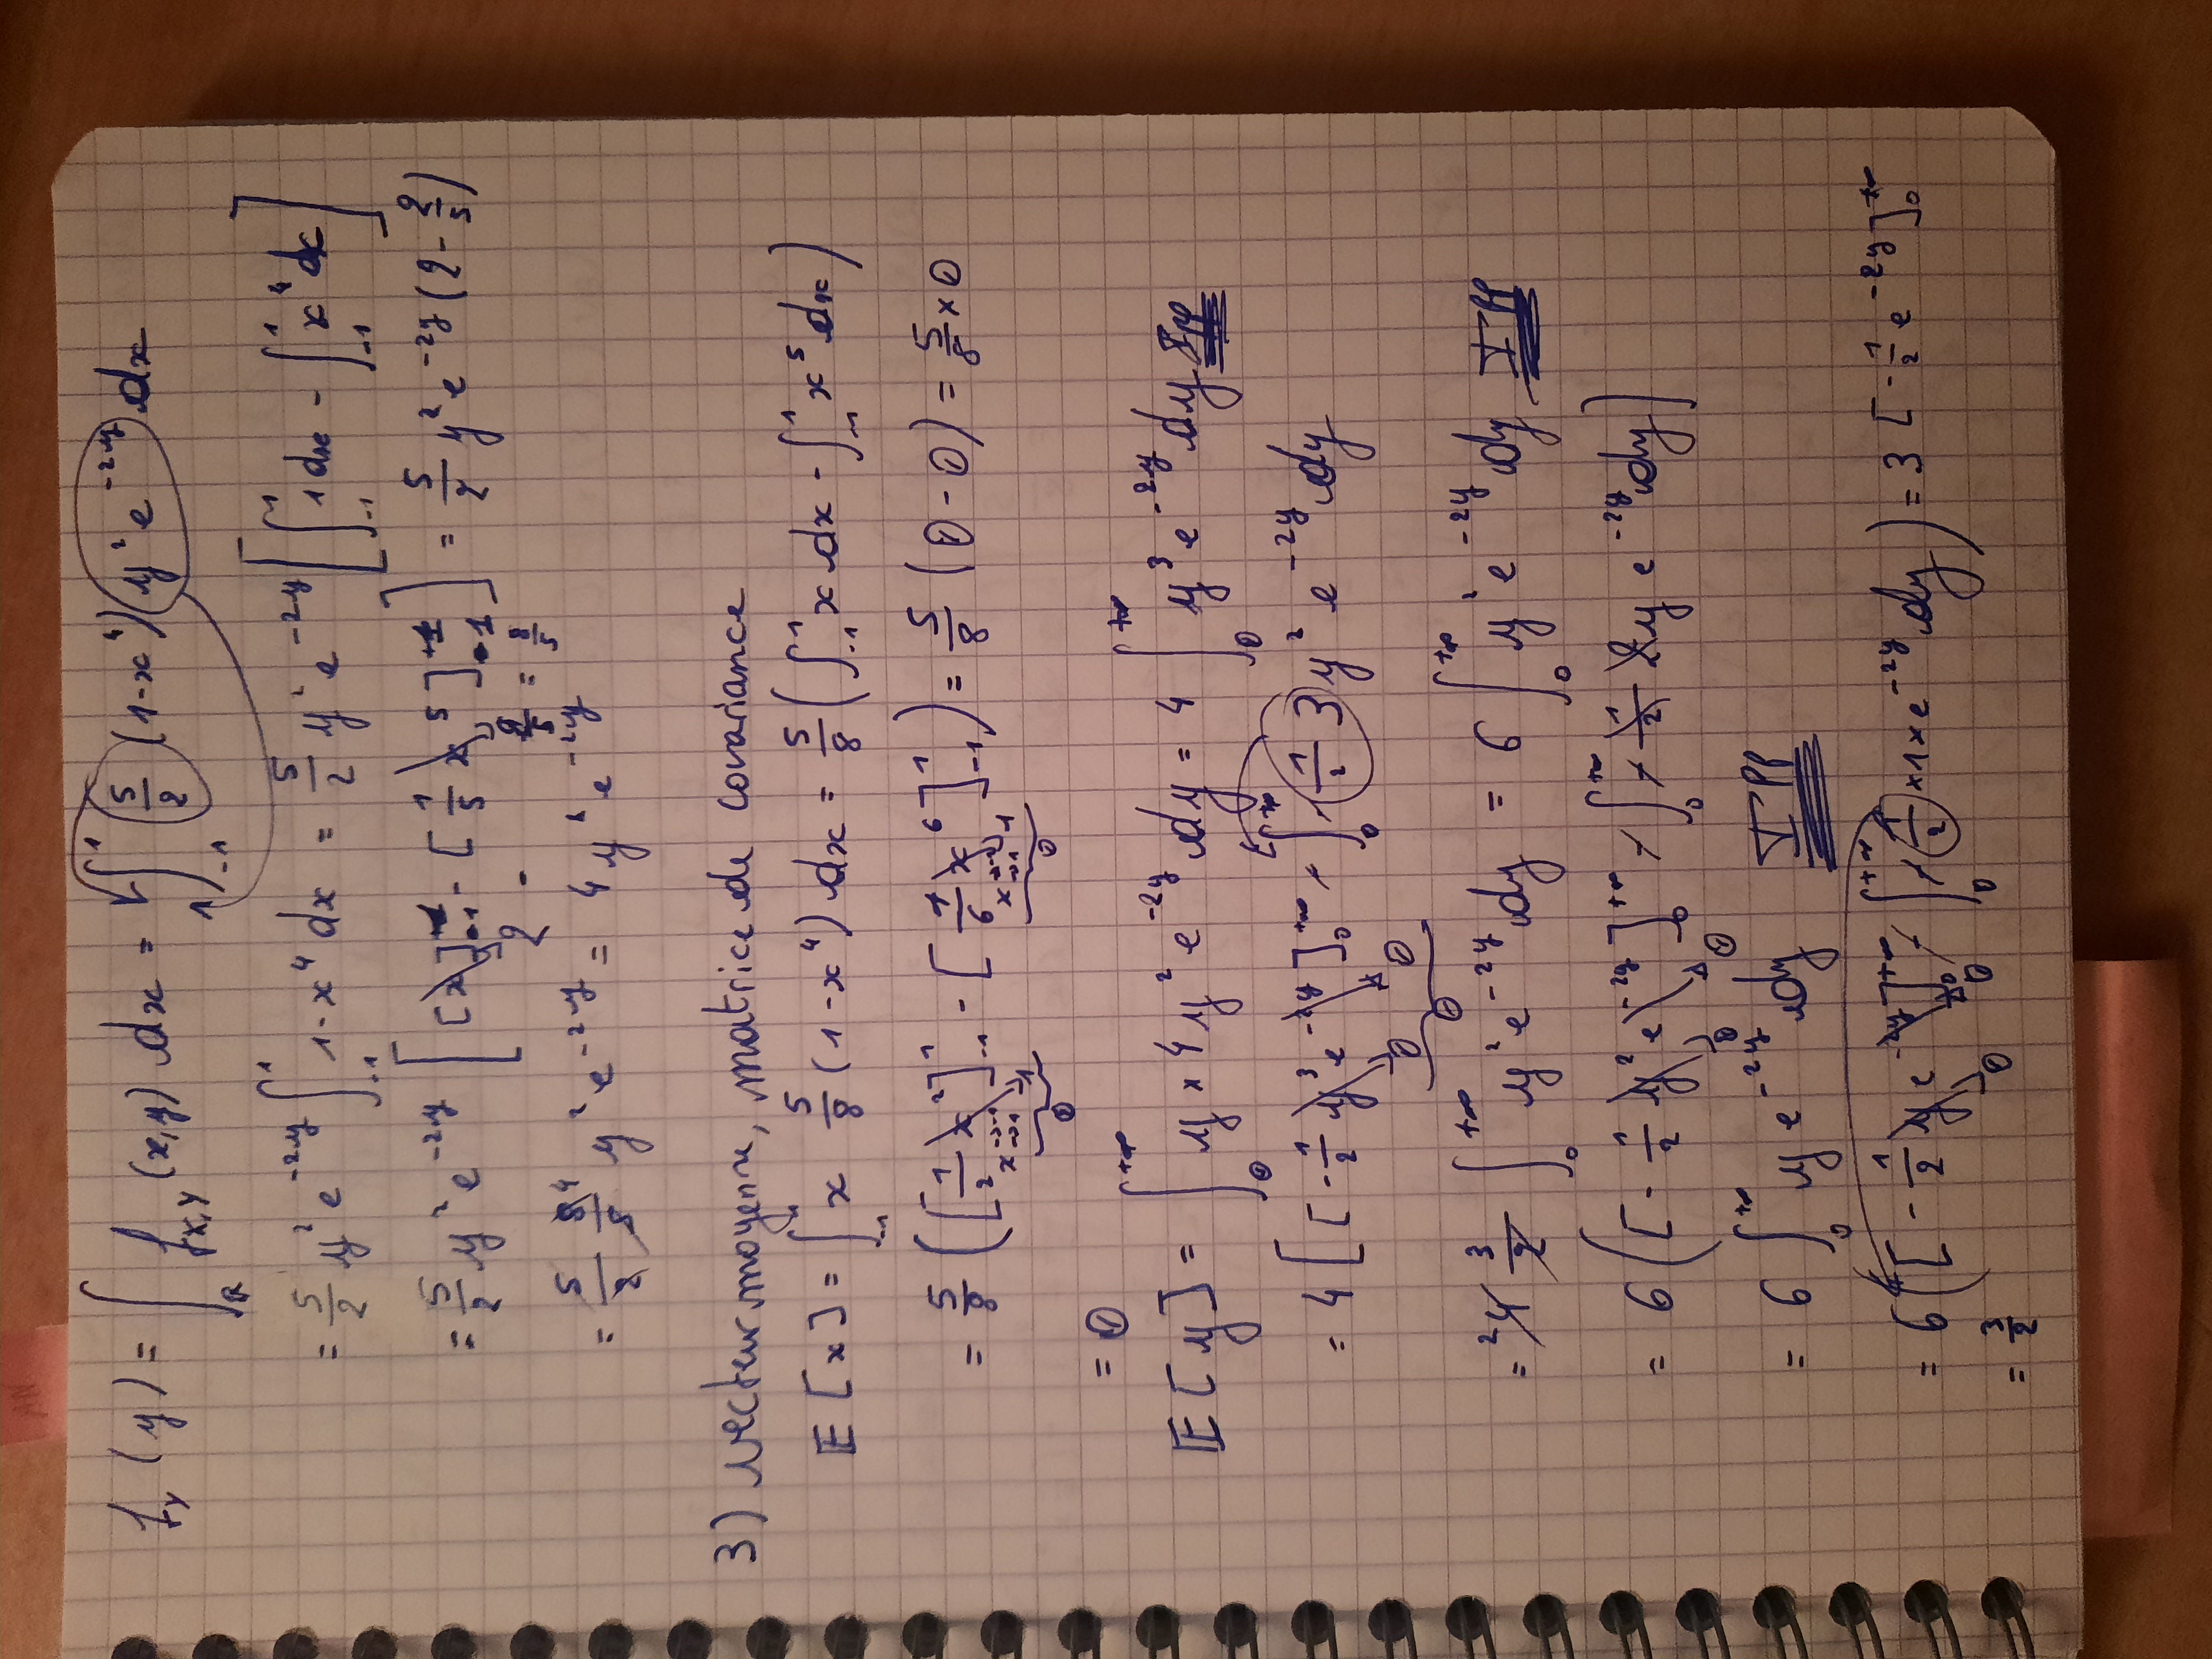 AN
f_Y (y) = ∫_R f_{X,Y} (x,y) dx = ∫_{-1}^{1} 5/2 (1-x⁴) y² e^{-2y} dx
= 5/2 y² e^{-2y} ∫_{-1}^{1} 1-x⁴ dx = 5/2 y² e^{-2y} [ ∫_{-1}^{1} 1 dx - ∫_{-1}^{1} x⁴ dx ]
= 5/2 y² e^{-2y} [ [x]_{-1}^{+1} - [ 1/5 x⁵ ]_{-1}^{+1} ] = 5/2 y² e^{-2y} (2 - 2/5)
2 - 2/5 = 8/5
= 5/2 8/5 4 y² e^{-2y} = 4 y² e^{-2y}
3) vecteur moyenne, matrice de covariance
E [x] = ∫_{-1}^{1} x 5/8 (1-x⁴) dx = 5/8 ( ∫_{-1}^{1} x dx - ∫_{-1}^{1} x⁵ dx )
= 5/8 ( [ 1/2 x² ]_{-1}^{1} - [ 1/6 x⁶ ]_{-1}^{1} ) = 5/8 (0 - 0) = 5/8 × 0
0 0
= 0
E [y] = ∫_0^{+∞} y × 4 y² e^{-2y} dy = 4 ∫_0^{+∞} y³ e^{-2y} dy Ipp
= 4 [ [ -1/2 y³ e^{-2y} ]_0^{+∞} - ∫_0^{+∞} -1/2 3 y² e^{-2y} dy
0 0
0
= 2 4 3/2 ∫_0^{+∞} y² e^{-2y} dy = 6 ∫_0^{+∞} y² e^{-2y} dy IPP
= 6 ( [ -1/2 y² e^{-2y} ]_0^{+∞} - ∫_0^{+∞} -1/2 2y e^{-2y} dy )
0 0
= 6 ∫_0^{+∞} y e^{-2y} dy IPP
= 6 ( [ -1/2 y e^{-2y} ]_0^{+∞} - ∫_0^{+∞} -1/2 × 1 × e^{-2y} dy ) = 3 [ -1/2 e^{-2y} ]_0^{+∞}
0 0
= 3/2